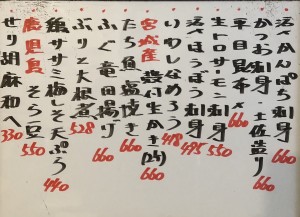 活〆かんぱち刺身 660
かつお刺身・土佐造り 660
平目昆布〆 660
生トロサーモン刺身 550
活〆ほうぼう刺身 495
いわしなめろう 418
宮城産 殻付生かき(2ヶ) 660
たち魚塩焼き 660
ふぐ竜田揚げ 660
ぶりと大根煮 528
鶏ササミ梅しそ天ぷら 440
鹿児島 そら豆 550
せり胡麻和へ 330